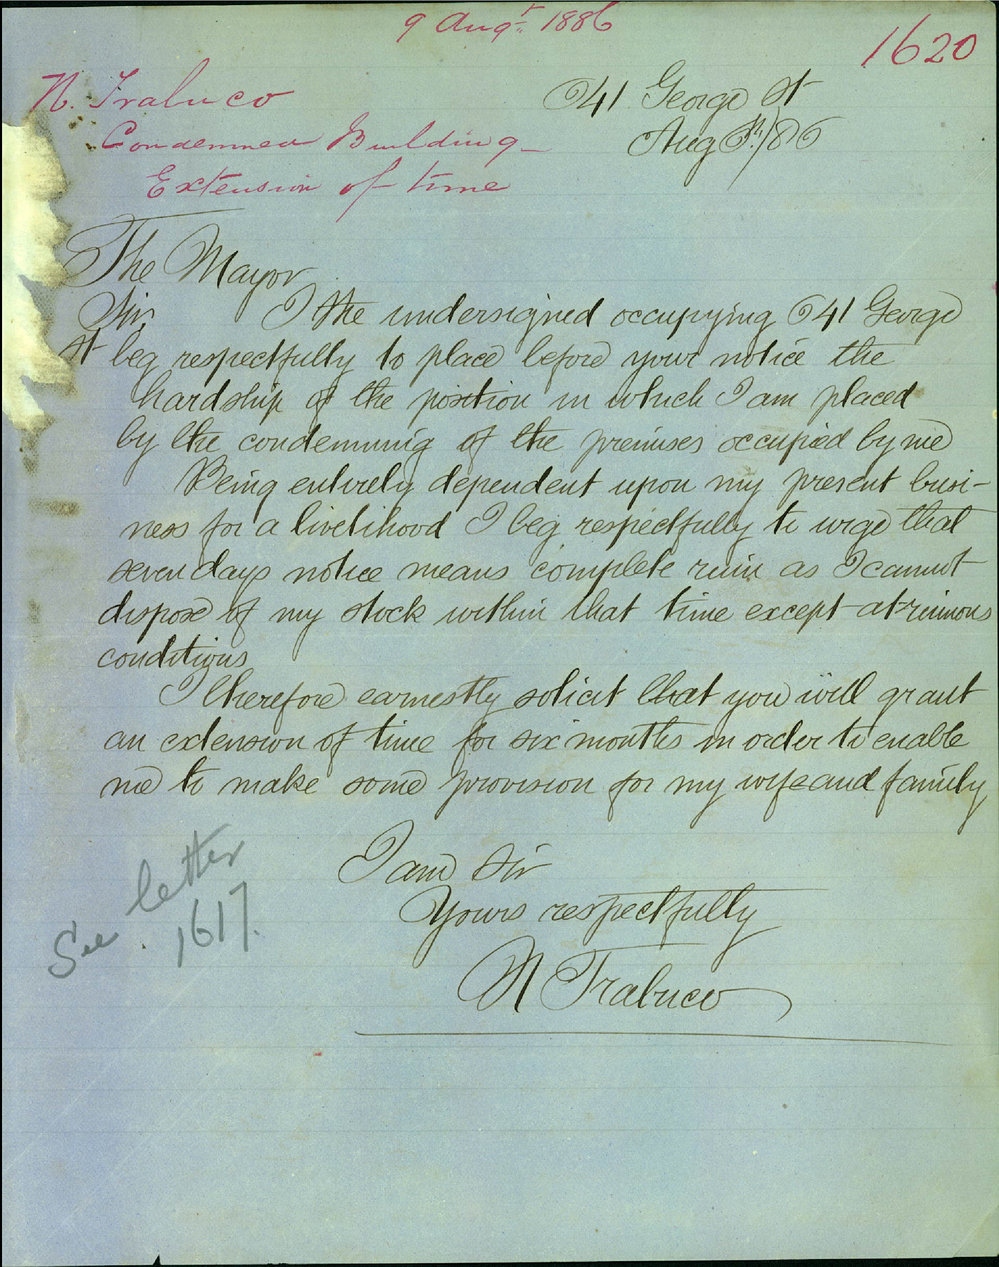 9 Augt. 1886
1620
N. Trabuco
Condemned Building
Extension of time
641 George St
Aug 6th/86
The Mayor
Sir I the undersigned occupying 641 George
St beg respectfully to place before your notice the
hardship of the position in which I am placed
by the condemning of the premises occupied by me
Being entirely dependent upon my present busi-
ness for a livelihood I beg respectfully to urge that
seven days notice means complete ruin as I cannot
dispose of my stock within that time except at ruinous
conditions
I therefore earnestly solicit that you will grant
an extension of time for six months in order to enable
me to make some provision for my wife and family
I am Sir
Yours respectfully
N Trabuco
See letter
1617.